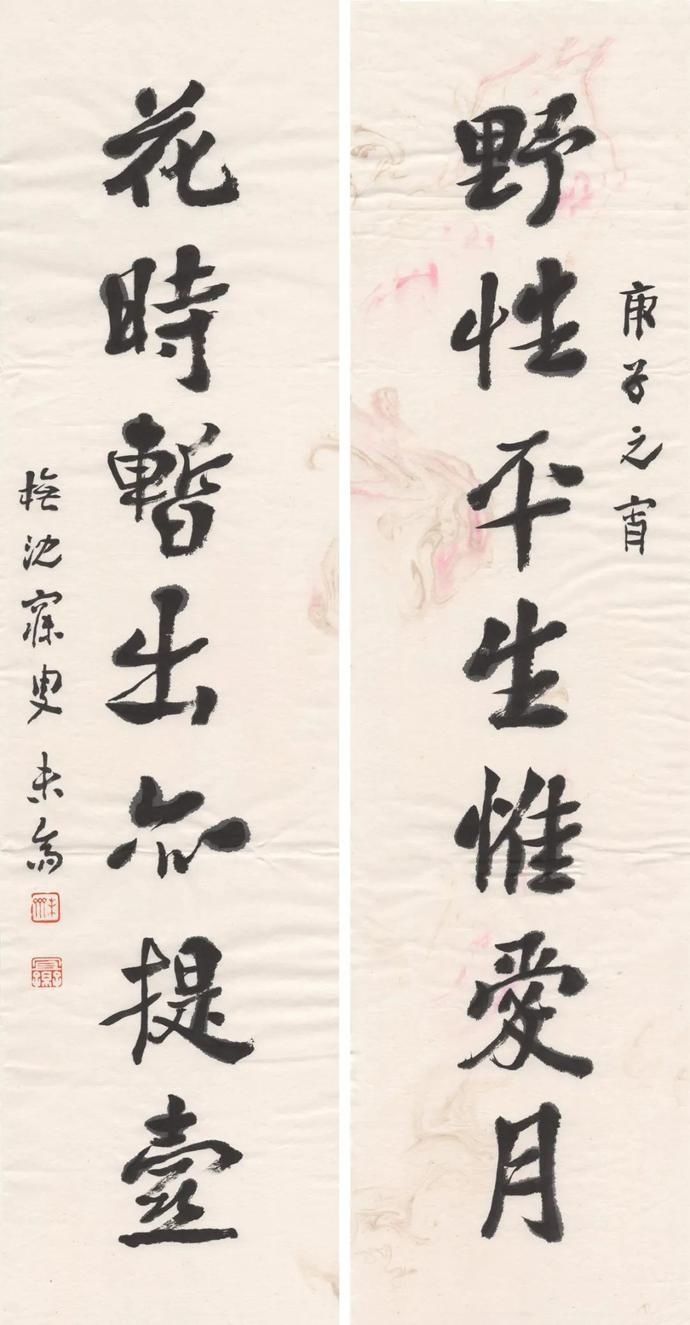 庚子元宵
野性平生惟愛月
花時暫出亦提壺
橅沈寐叟 未